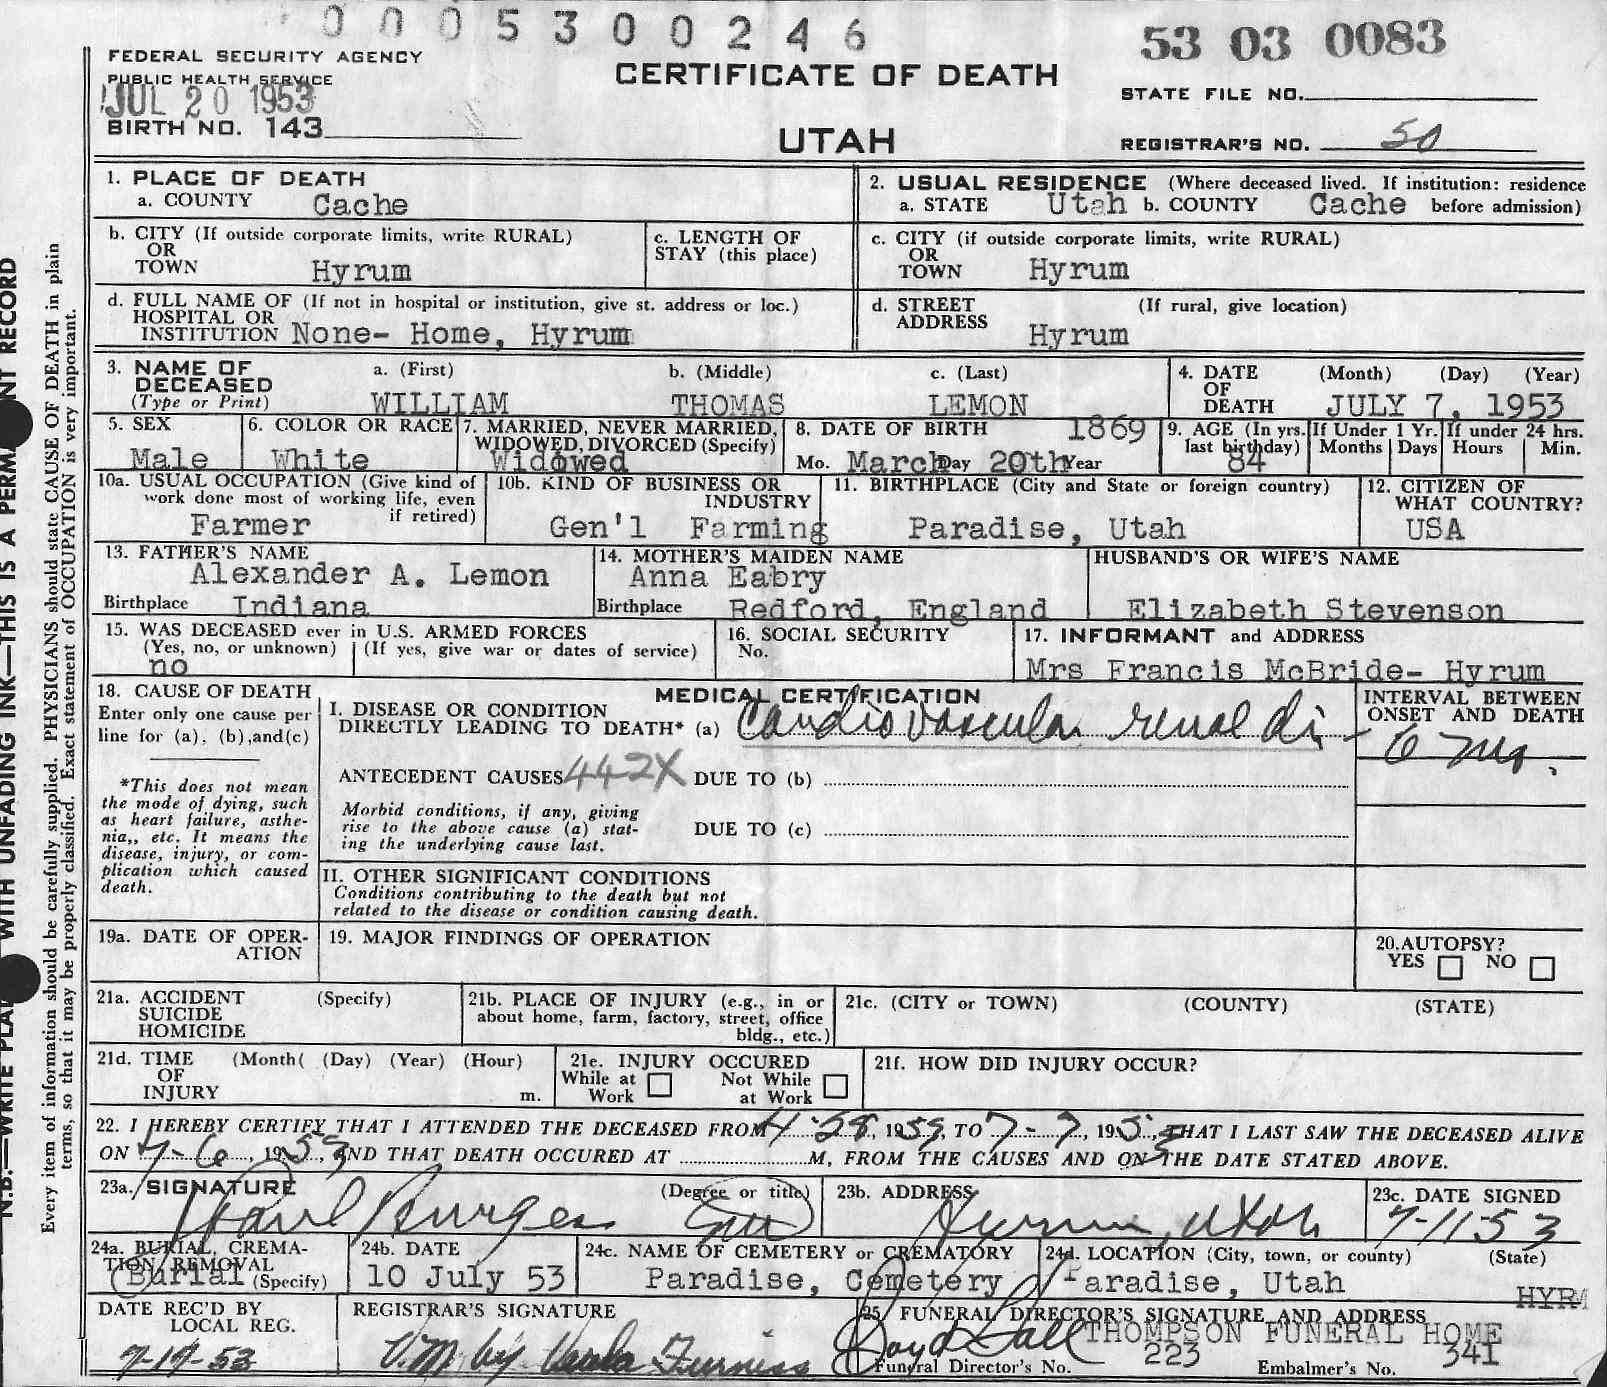 0005300246
53 03 0083
FEDERAL SECURITY AGENCY
PUBLIC HEALTH SERVICE
JUL 20 1953
BIRTH NO. 143
CERTIFICATE OF DEATH
UTAH
STATE FILE NO.
REGISTRAR'S NO. 50
1. PLACE OF DEATH
a. COUNTY Cache
2. USUAL RESIDENCE (Where deceased lived. If institution: residence
a. STATE Utah b. COUNTY Cache before admission)
b. CITY (If outside corporate limits, write RURAL)
OR
TOWN Hyrum
c. LENGTH OF
STAY (this place)
c. CITY (if outside corporate limits, write RURAL)
OR
TOWN Hyrum
d. FULL NAME OF (If not in hospital or institution, give st. address or loc.)
HOSPITAL OR
INSTITUTION None- Home, Hyrum
d. STREET (If rural, give location)
ADDRESS Hyrum
3. NAME OF
DECEASED
(Type or Print)
a. (First) b. (Middle) c. (Last)
WILLIAM THOMAS LEMON
4. DATE (Month) (Day) (Year)
OF
DEATH JULY 7, 1953
5. SEX
Male
6. COLOR OR RACE
White
7. MARRIED, NEVER MARRIED,
WIDOWED, DIVORCED (Specify)
Widowed
8. DATE OF BIRTH 1869
Mo. March Day 20th Year
9. AGE (In yrs.
last birthday)
84
If Under 1 Yr.
Months Days
If under 24 hrs.
Hours Min.
10a. USUAL OCCUPATION (Give kind of
work done most of working life, even
if retired)
Farmer
10b. KIND OF BUSINESS OR
INDUSTRY
Gen'l Farming
11. BIRTHPLACE (City and State or foreign country)
Paradise, Utah
12. CITIZEN OF
WHAT COUNTRY?
USA
13. FATHER'S NAME
Alexander A. Lemon
Birthplace Indiana
14. MOTHER'S MAIDEN NAME
Anna Eabry
Birthplace Redford, England
HUSBAND'S OR WIFE'S NAME
Elizabeth Stevenson
15. WAS DECEASED ever in U.S. ARMED FORCES
(Yes, no, or unknown) (If yes, give war or dates of service)
no
16. SOCIAL SECURITY
No.
17. INFORMANT and ADDRESS
Mrs Francis McBride- Hyrum
18. CAUSE OF DEATH
Enter only one cause per
line for (a), (b), and (c)
*This does not mean
the mode of dying, such
as heart failure, asthe-
nia,, etc. It means the
disease, injury, or com-
plication which caused
death.
MEDICAL CERTIFICATION
I. DISEASE OR CONDITION
DIRECTLY LEADING TO DEATH* (a) Cardio vascular renal di-
INTERVAL BETWEEN
ONSET AND DEATH
6 mo.
ANTECEDENT CAUSES 442X DUE TO (b)
Morbid conditions, if any, giving
rise to the above cause (a) stat-
ing the underlying cause last.
DUE TO (c)
II. OTHER SIGNIFICANT CONDITIONS
Conditions contributing to the death but not
related to the disease or condition causing death.
19a. DATE OF OPER-
ATION
19. MAJOR FINDINGS OF OPERATION
20. AUTOPSY?
YES NO
21a. ACCIDENT (Specify)
SUICIDE
HOMICIDE
21b. PLACE OF INJURY (e.g., in or
about home, farm, factory, street, office
bldg., etc.)
21c. (CITY or TOWN) (COUNTY) (STATE)
21d. TIME (Month( (Day) (Year) (Hour)
OF
INJURY m.
21e. INJURY OCCURED
While at Work Not While at Work
21f. HOW DID INJURY OCCUR?
22. I HEREBY CERTIFY THAT I ATTENDED THE DECEASED FROM 4-28, 1953, TO 7-7, 1953, THAT I LAST SAW THE DECEASED ALIVE
ON 7-6, 1953, AND THAT DEATH OCCURED AT M, FROM THE CAUSES AND ON THE DATE STATED ABOVE.
23a. SIGNATURE (Degree or title)
Paul Burgess MD
23b. ADDRESS
Hyrum, Utah
23c. DATE SIGNED
7-11-53
24a. BURIAL, CREMA-
TION, REMOVAL
Burial (Specify)
24b. DATE
10 July 53
24c. NAME OF CEMETERY or CREMATORY
Paradise, Cemetery
24d. LOCATION (City, town, or county) (State)
Paradise, Utah
HYRM
DATE REC'D BY
LOCAL REG.
7-17-53
REGISTRAR'S SIGNATURE
V.M by Furniss
25. FUNERAL DIRECTOR'S SIGNATURE AND ADDRESS
Boyd Hall THOMPSON FUNERAL HOME
Funeral Director's No. 223 Embalmer's No. 341
N.B.—WRITE WITH UNFADING INK—THIS IS A RECORD
Every item of information should be carefully supplied. PHYSICIANS should state CAUSE OF DEATH in plain
terms, so that it may be properly classified. Exact statement of OCCUPATION is very important.